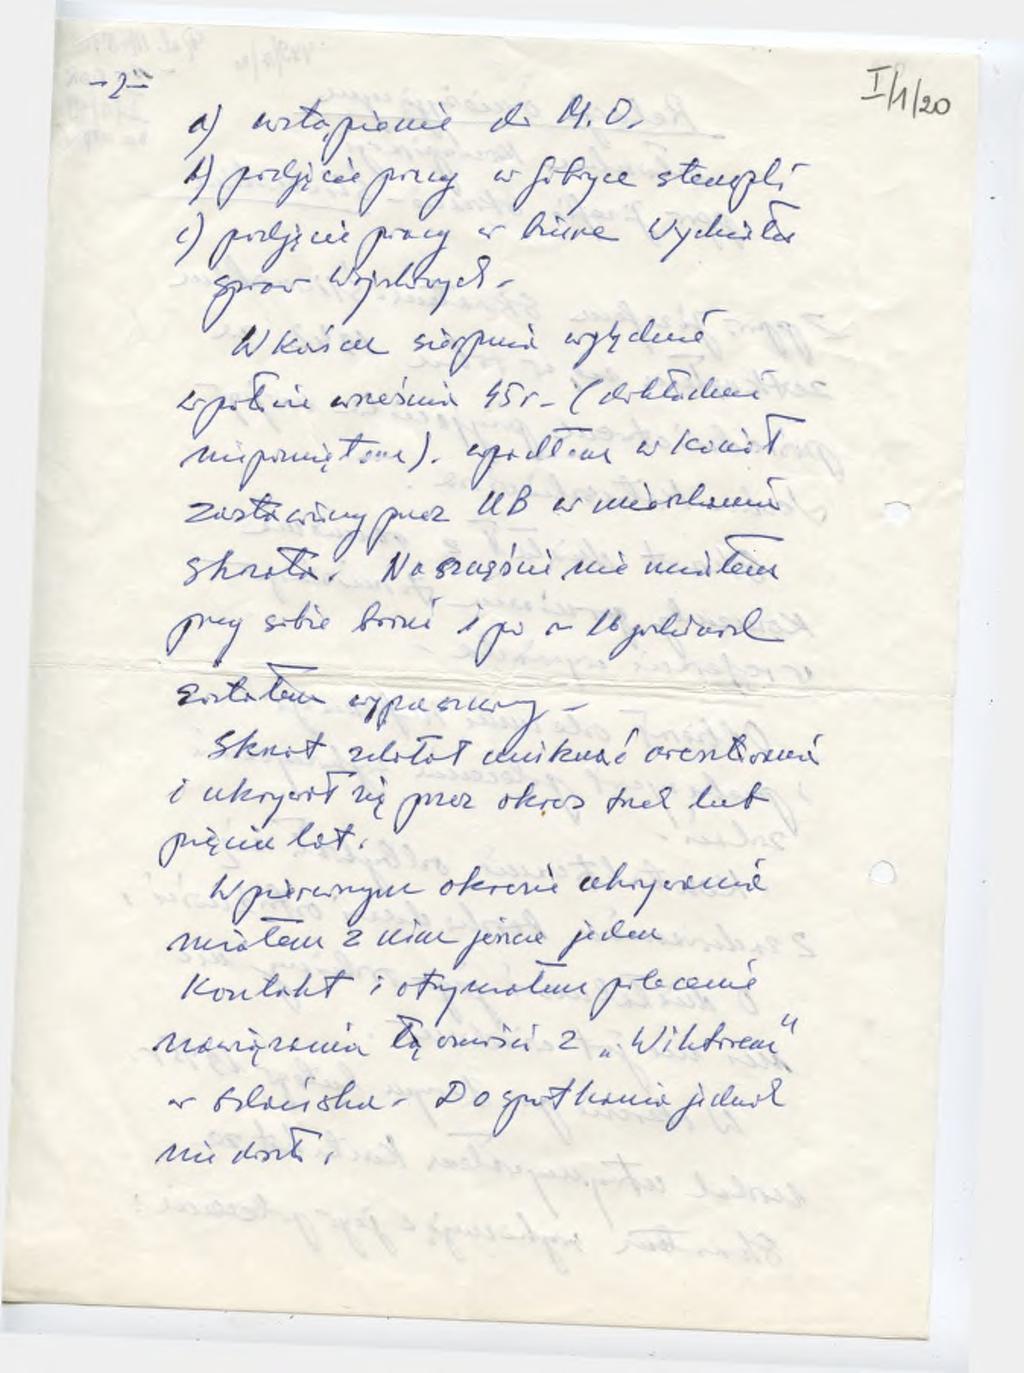 I/1/20
-2-
a) wstąpienie do M.O.
b) podjęcie pracy w fabryce stempli
c) podjęcie pracy w biurze Wydziału
spraw Wojskowych.
W końcu sierpnia względnie
w połowie września 45 r. (dokładnie
nie pamiętam). wpadłem w kocioł
zastawiony przez UB w mieszkaniu
Skrota. Na szczęście nie miałem
przy sobie broni i po ~ 16 godzinach
zostałem wypuszczony -
Skrot zdołał uniknąć aresztowania
i ukrywał się przez okres
pięciu lat.
W pierwszym okresie ukrywania
miałem z nim jeszcze jeden
Kontakt i otrzymałem polecenie
nawiązania łączności z „Wiktorem"
w Gdańsku - Do spotkania jednak
nie doszło.